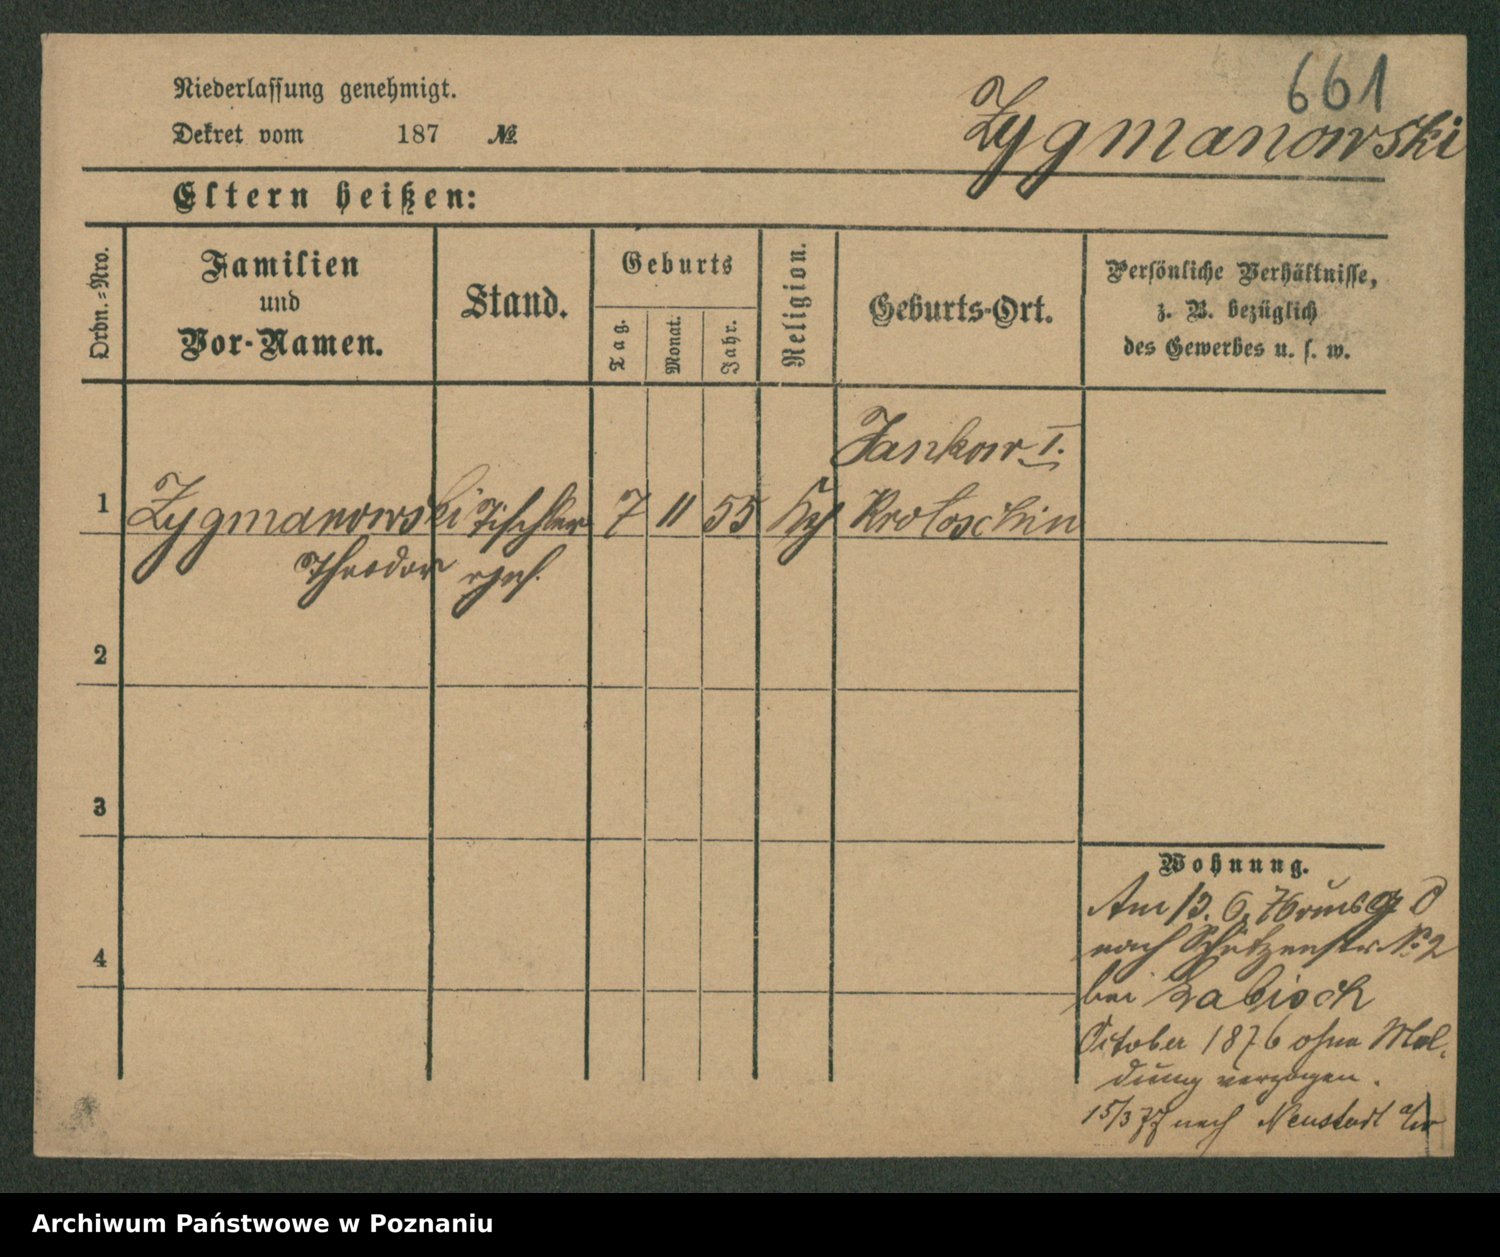 661
Niederlassung genehmigt.
Dekret vom 187 №
Zygmanowski
Eltern heißen:
Ordn.=Nro.
Familien
und
Vor-Namen.
Stand.
Geburts
Tag.
Monat.
Jahr.
Religion.
Geburts-Ort.
Persönliche Verhältnisse,
z. B. bezüglich
des Gewerbes u. s. w.
Jankow I.
1 Zygmanowski Tischler 7 11 55 Krotoschin
Theodor
2
3
4
Wohnung.
Am 13. 6. 76
nach Schützenstr. № 2
bei Labisch
October 1876 ohne Mel-
dung verzogen.
15/3 77 nach Neustadt a/w